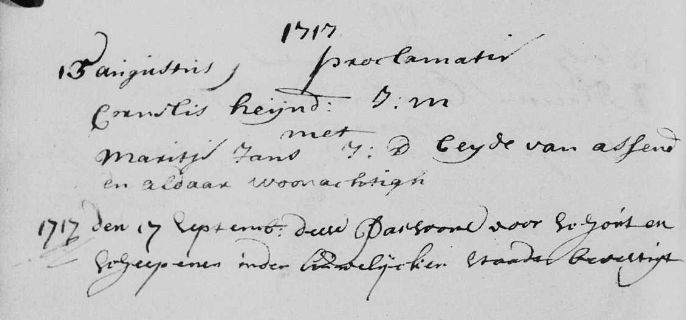 1717
13 augustus, proclamatie
Cornelis heijnd: J: m
met
Maritje Jans J: D beyde van assend
en aldaar woonachtigh
1717 den 17 septemb: dese Parsoone voor schout en
scheepenen inden huwelijcken staadt bevestigt